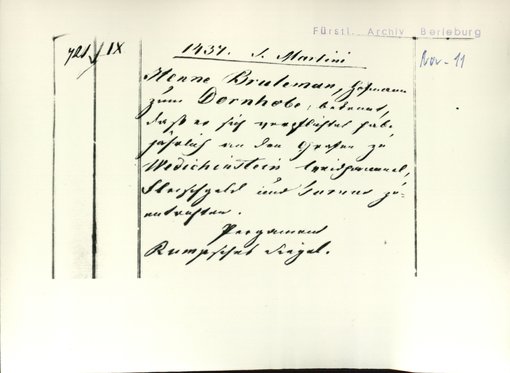 Fürstl. Archiv Berleburg
721 / IX
1431. S. Martini
Nov - 11
Henne Bruleman, Hofmann
zum Dornhobe, bekennt,
daß er sich verpflichtet habe,
jährlich an den Grafen zu
Wedichinstein
Fleischgeld und zu
entrichten.
Pergament
Rumpsches Siegel.